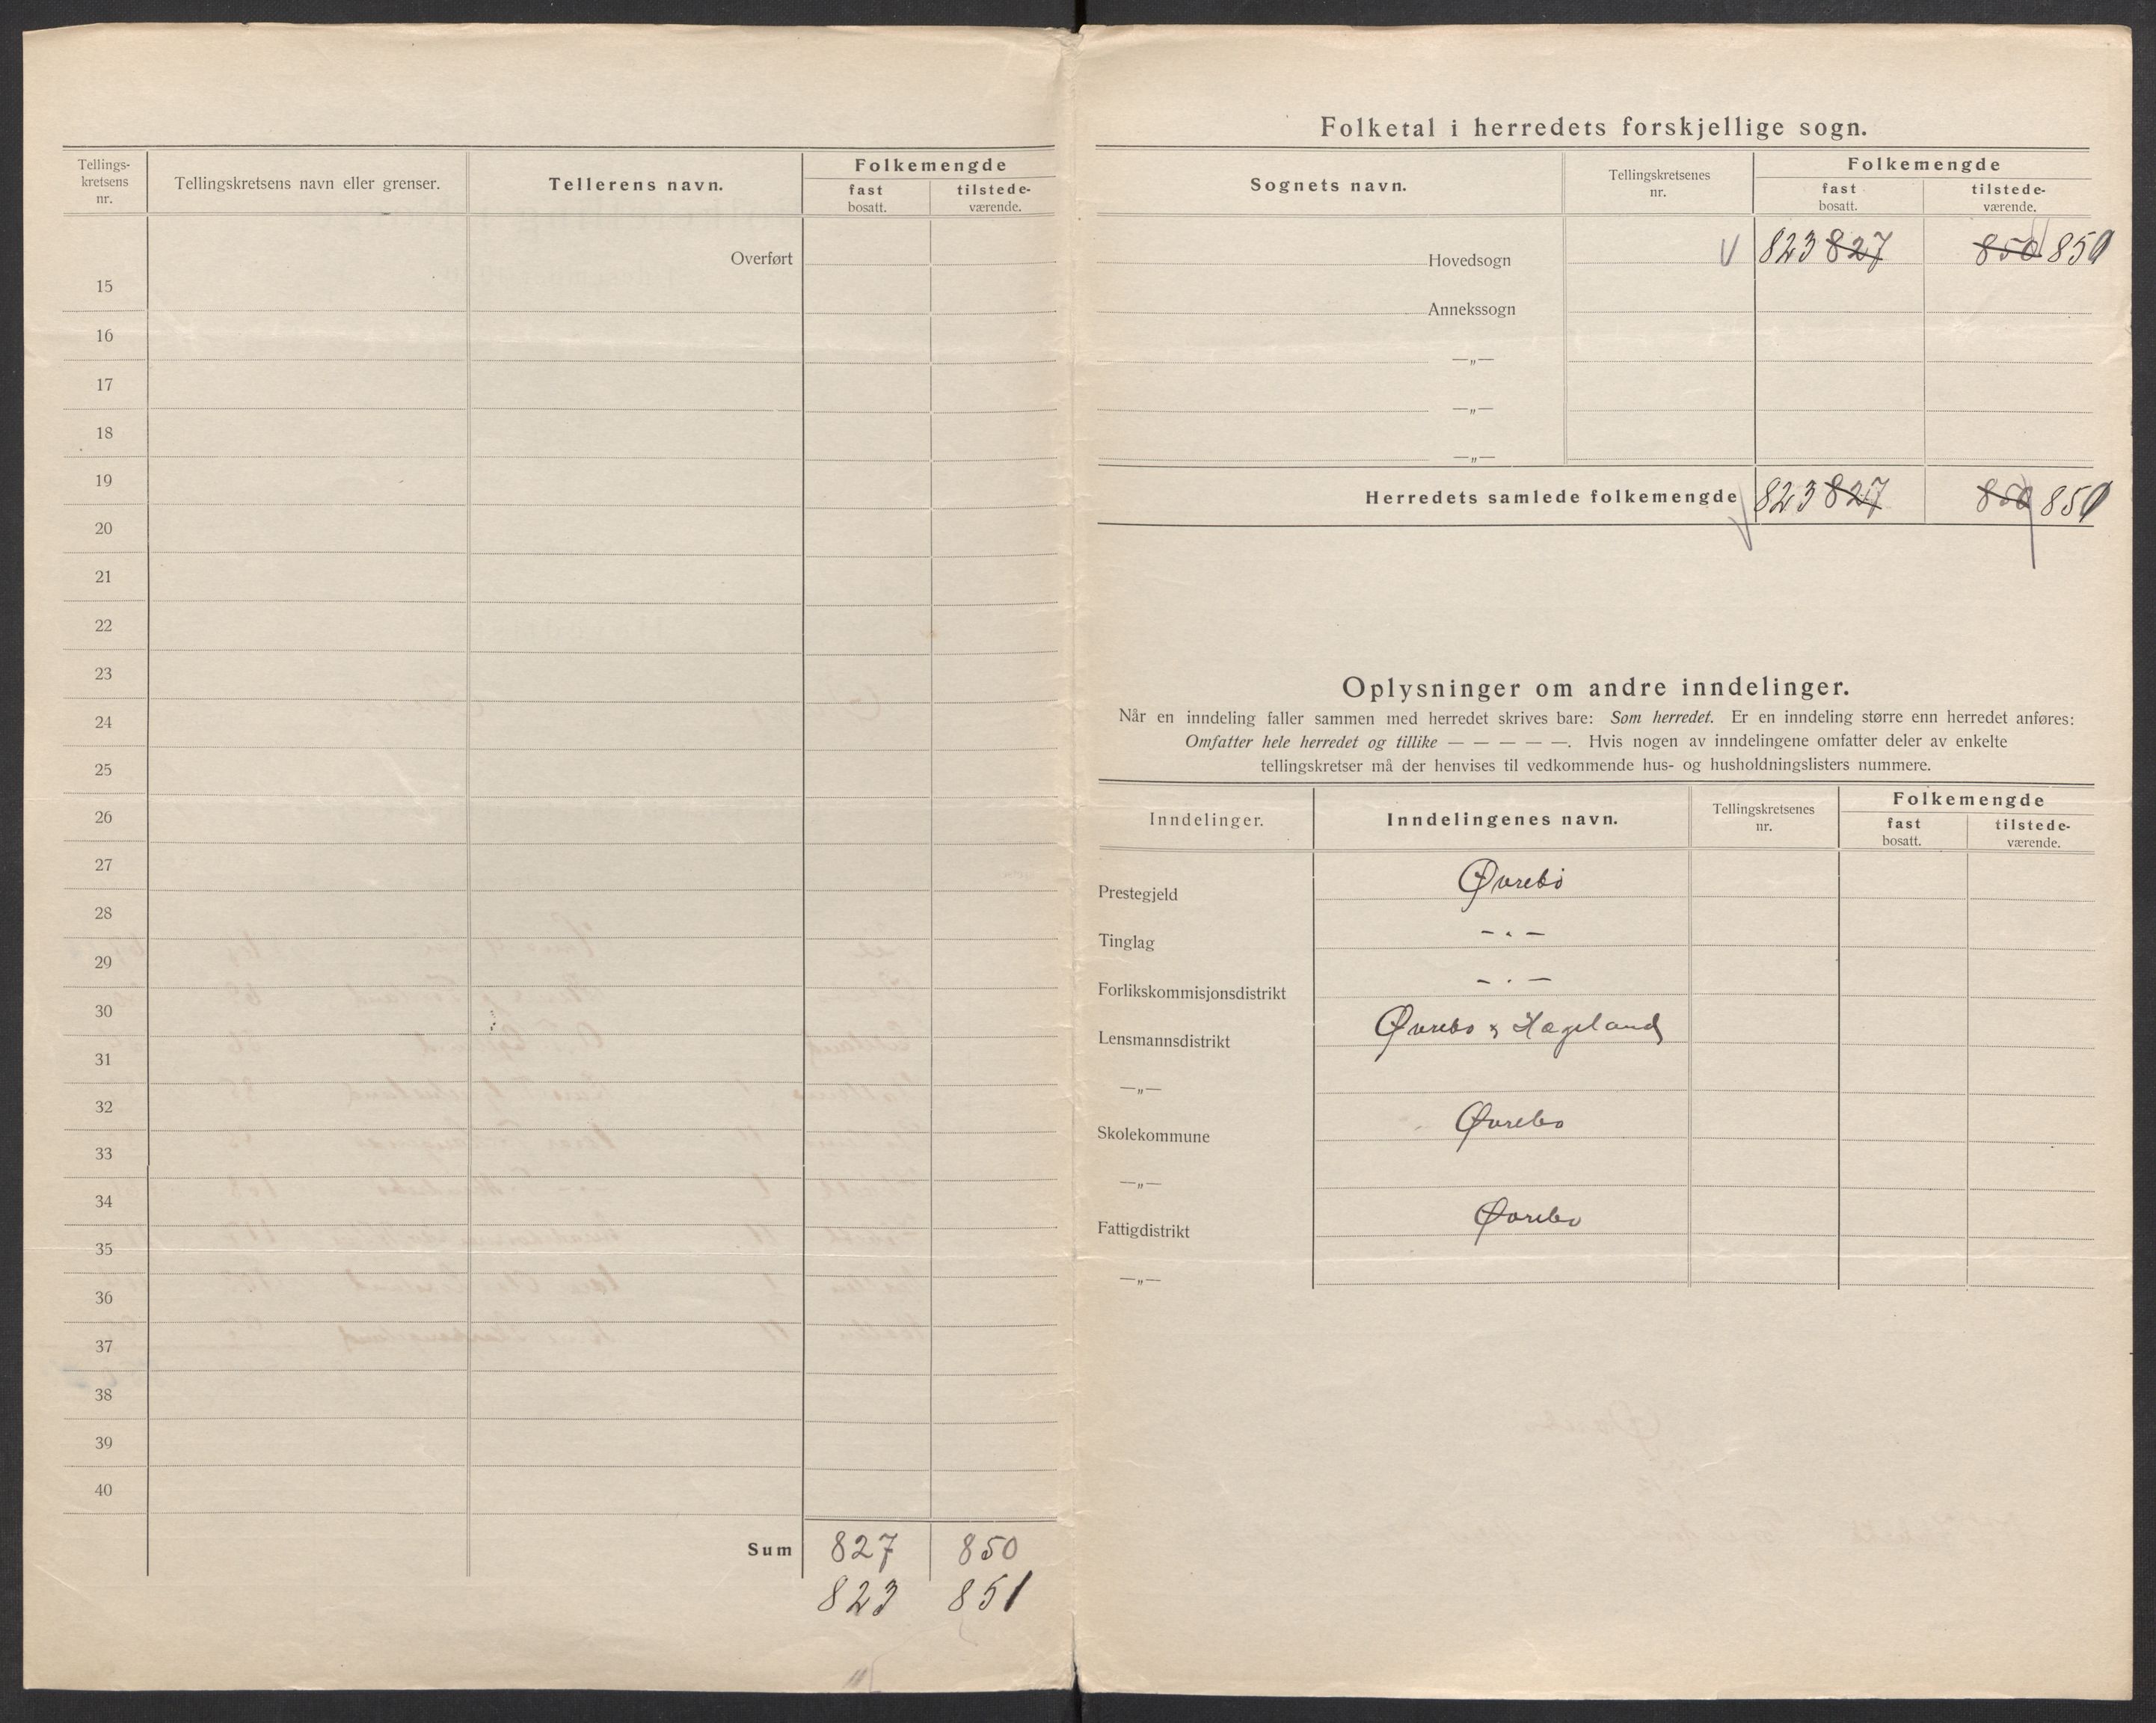 Tellings-
kretsens
nr.
Tellingskretsens navn eller grenser.
Tellerens navn.
Folkemengde
fast
bosatt.
tilstede-
værende.
Overført
15
16
17
18
19
20
21
22
23
24
25
26
27
28
29
30
31
32
33
34
35
36
37
38
39
40
Sum 827 850
823 851
Folketal i herredets forskjellige sogn.
Sognets navn.
Tellingskretsenes
nr.
Folkemengde
fast
bosatt.
tilstede-
værende.
Hovedsogn 823 827 850 851
Annekssogn
—„—
—„—
—„—
Herredets samlede folkemengde 823 827 850 851
Oplysninger om andre inndelinger.
Når en inndeling faller sammen med herredet skrives bare: Som herredet. Er en inndeling større enn herredet anføres:
Omfatter hele herredet og tillike — — — — —. Hvis nogen av inndelingene omfatter deler av enkelte
tellingskretser må der henvises til vedkommende hus- og husholdningslisters nummere.
Inndelinger.
Inndelingenes navn.
Tellingskretsenes
nr.
Folkemengde
fast
bosatt.
tilstede-
værende.
Prestegjeld Øvrebö
Tinglag - . -
Forlikskommisjonsdistrikt - . -
Lensmannsdistrikt Øvrebo & Hægeland
—„—
Skolekommune Øvrebo
—„—
Fattigdistrikt Øvrebo
—„—